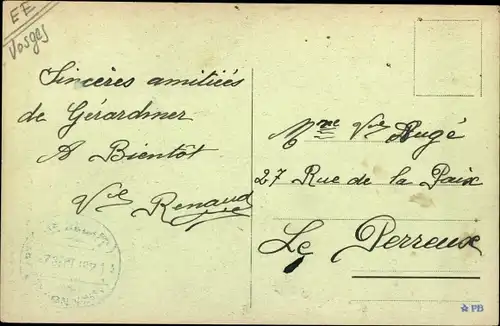 EE
Vosges
Sincères amitiés
de Gérardmer
A Bientôt
Vve Renaud
Mme Vve Augé
27 Rue de la Paix
Le Perreux
PB